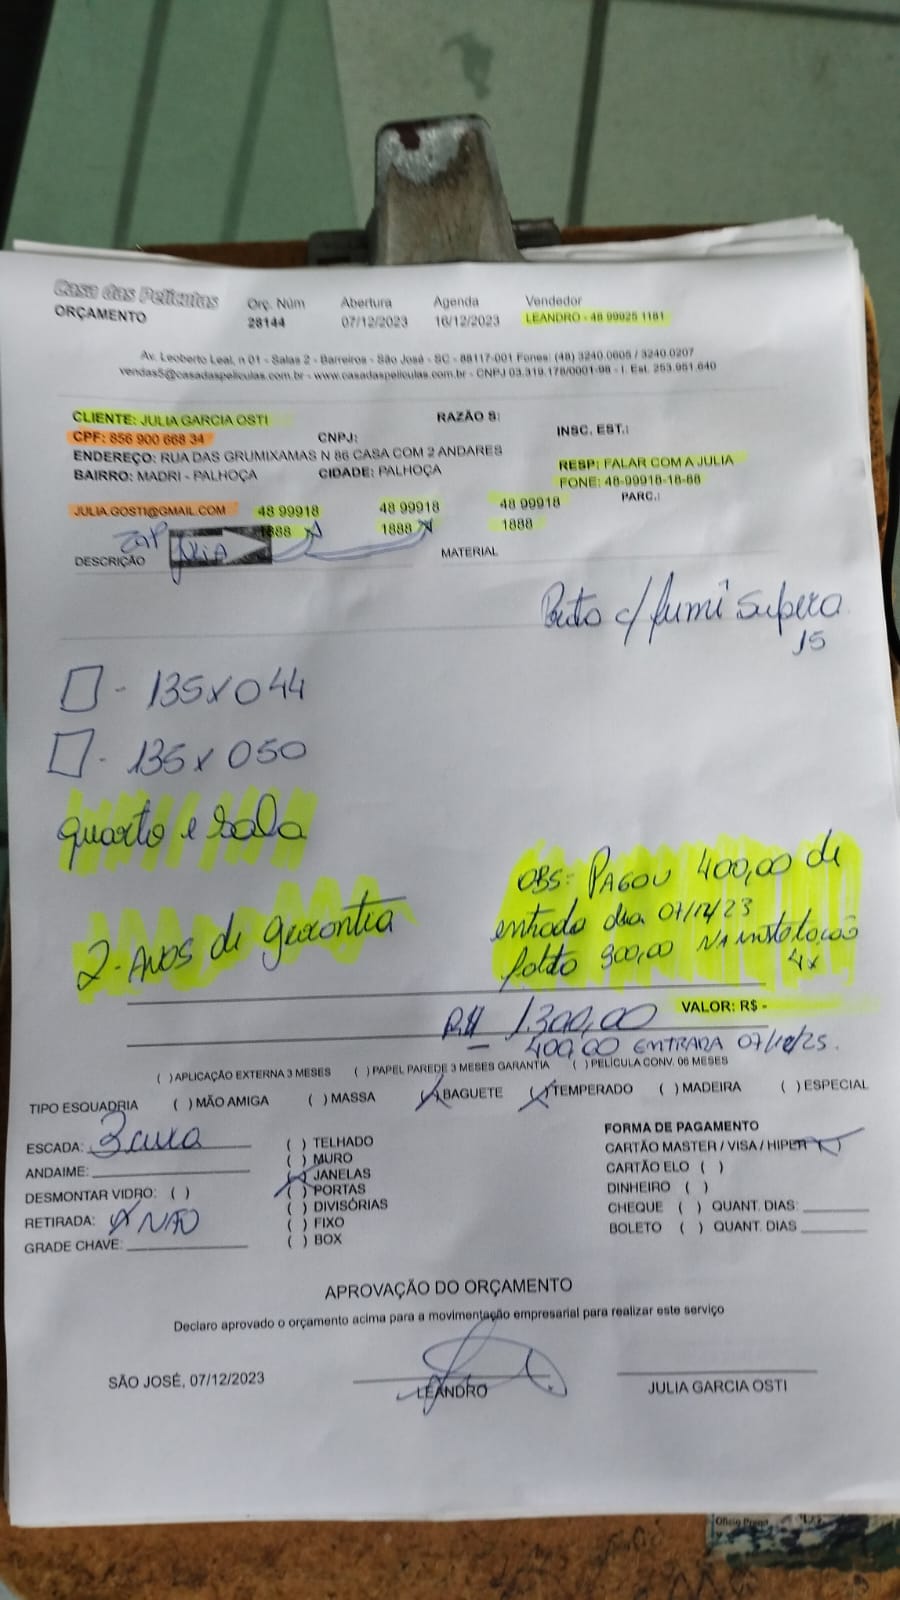 Casa das Películas
ORÇAMENTO
Orç. Núm Abertura Agenda Vendedor
28144 07/12/2023 16/12/2023 LEANDRO - 48 99925 1181
Av. Leoberto Leal, n 01 - Salas 2 - Barreiros - São José - SC - 88117-001 Fones: (48) 3240.0605 / 3240.0207
vendas5@casadaspeliculas.com.br - www.casadaspeliculas.com.br - CNPJ 03.319.178/0001-98 - I. Est. 253.951.640
CLIENTE: JULIA GARCIA OSTI RAZÃO S:
CPF: 856 900 668 34 CNPJ: INSC. EST.:
ENDEREÇO: RUA DAS GRUMIXAMAS N 86 CASA COM 2 ANDARES
BAIRRO: MADRI - PALHOÇA CIDADE: PALHOÇA RESP: FALAR COM A JULIA
FONE: 48-99918-18-88
PARC.:
JULIA.GOSTI@GMAIL.COM 48 99918 48 99918 48 99918
1888 1888 1888
ZAP JULIA
DESCRIÇÃO MATERIAL
Preto c/ fumê Supera
15
- 135x044
- 135x050
quarto e sala
2-Anos de garantia
OBS: PAGOU 400,00 de
entrada dia 07/12/23
900,00 NA instalação
4x
VALOR: R$ -
R$ 1.300,00
- 400,00 ENTRADA
( ) APLICAÇÃO EXTERNA 3 MESES ( ) PAPEL PAREDE 3 MESES GARANTIA ( ) PELÍCULA CONV. 06 MESES
TIPO ESQUADRIA ( ) MÃO AMIGA ( ) MASSA (X) BAGUETE (X) TEMPERADO ( ) MADEIRA ( ) ESPECIAL
ESCADA:
ANDAIME:
DESMONTAR VIDRO: ( )
RETIRADA: X NÃO
GRADE CHAVE:
( ) TELHADO
( ) MURO
(X) JANELAS
( ) PORTAS
( ) DIVISÓRIAS
( ) FIXO
( ) BOX
FORMA DE PAGAMENTO
CARTÃO MASTER / VISA / HIPER (X)
CARTÃO ELO ( )
DINHEIRO ( )
CHEQUE ( ) QUANT. DIAS:
BOLETO ( ) QUANT. DIAS
APROVAÇÃO DO ORÇAMENTO
Declaro aprovado o orçamento acima para a movimentação empresarial para realizar este serviço
SÃO JOSÉ, 07/12/2023 LEANDRO JULIA GARCIA OSTI